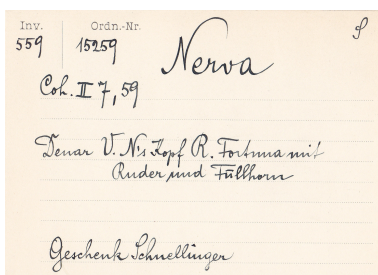 Inv. Ordn.-Nr.
559 15259 Nerva S
Coh. II 7, 59
Denar V. N's Kopf R. Fortuna mit
Ruder und Füllhorn
Geschenk Schnellinger